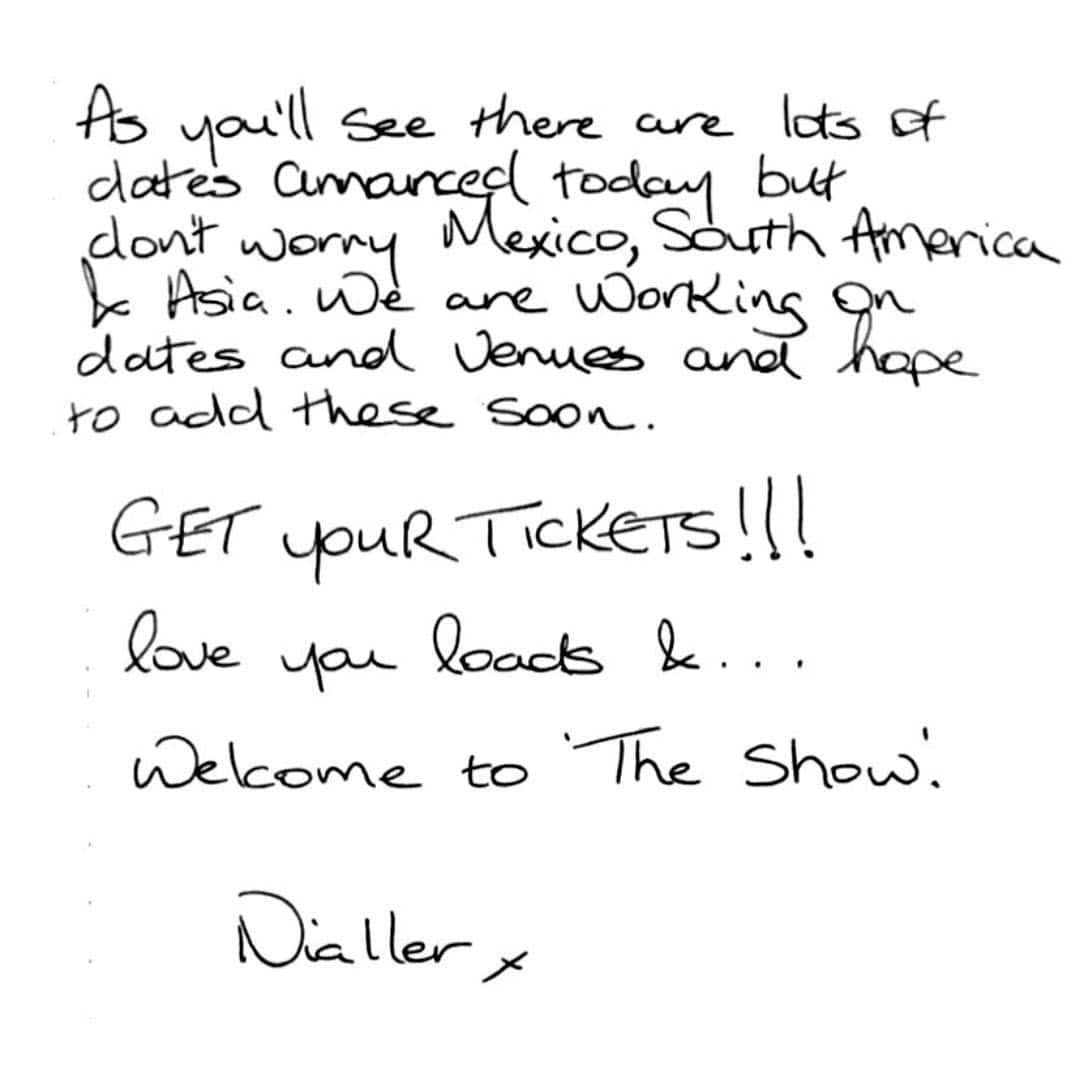 As you'll see there are lots of
dates announced today but
don't worry Mexico, South America
& Asia. We are working on
dates and venues and hope
to add these soon.
GET YOUR TICKETS!!!
love you loads & ...
Welcome to 'The Show'.
Nialler x